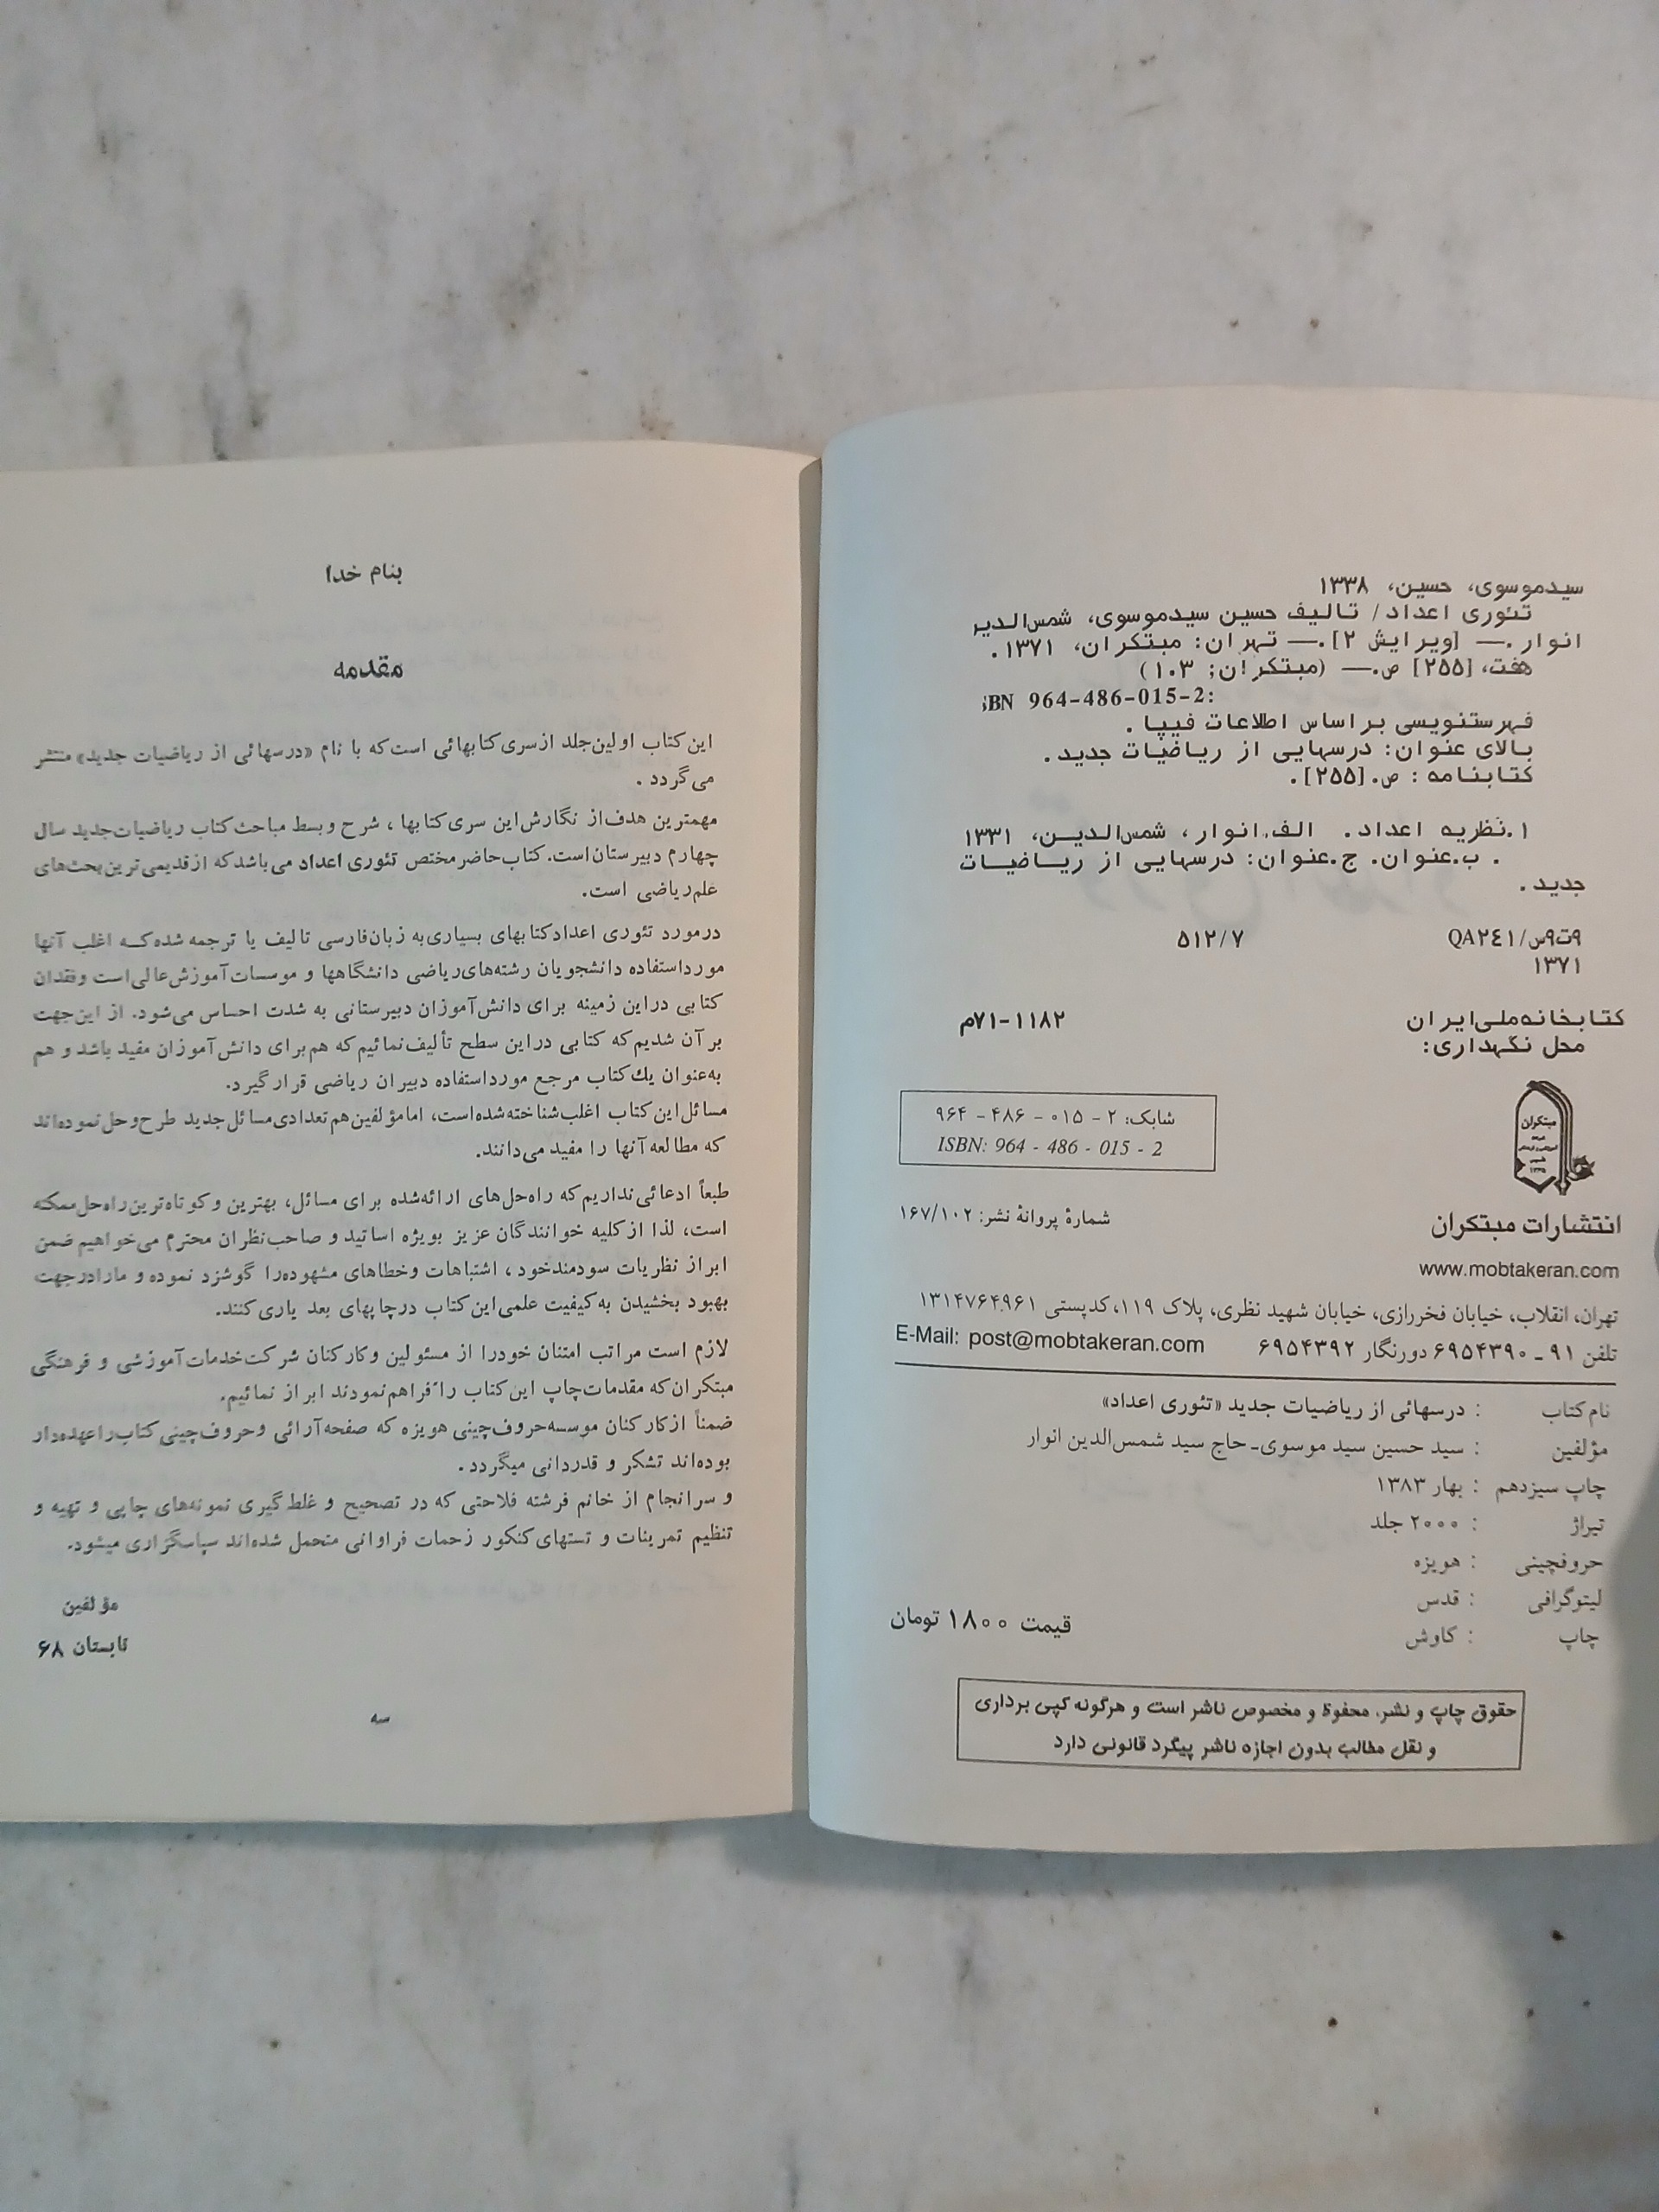 سیدموسوی، حسین، ۱۳۳۸
تئوری اعداد/ تالیف حسین سیدموسوی، شمس‌الدین
انوار .— [ویرایش ۲].— تهران: مبتکران، ۱۳۷۱.
هفت، [۲۵۵] ص.— (مبتکران؛ ۱۰۳)
ISBN 964-486-015-2:
فهرستنویسی براساس اطلاعات فیپا .
بالای عنوان: درسهایی از ریاضیات جدید.
کتابنامه: ص. [۲۵۵].
۱.نظریه اعداد. الف.انوار، شمس‌الدین، ۱۳۳۱
. ب.عنوان. ج.عنوان: درسهایی از ریاضیات
جدید.
۹ت۹س/QA۲٤۱ ۵۱۲/۷
۱۳۷۱
کتابخانه‌ملی‌ایران ۱۱۸۲-۷۱م
محل نگهداری:
مبتکران
شابک: ۲ - ۰۱۵ - ۴۸۶ - ۹۶۴
ISBN: 964 - 486 - 015 - 2
انتشارات مبتکران شمارهٔ پروانهٔ نشر: ۱۶۷/۱۰۲
www.mobtakeran.com
تهران، انقلاب، خیابان فخررازی، خیابان شهید نظری، پلاک ۱۱۹، کدپستی ۱۳۱۴۷۶۴۹۶۱
تلفن ۹۱ ـ ۶۹۵۴۳۹۰ دورنگار ۶۹۵۴۳۹۲ E-Mail: post@mobtakeran.com
نام کتاب : درسهائی از ریاضیات جدید «تئوری اعداد»
مؤلفین : سید حسین سید موسوی ـ حاج سید شمس‌الدین انوار
چاپ سیزدهم : بهار ۱۳۸۳
تیراژ : ۲۰۰۰ جلد
حروفچینی : هویزه
لیتوگرافی : قدس
چاپ : کاوش قیمت ۱۸۰۰ تومان
حقوق چاپ و نشر، محفوظ و مخصوص ناشر است و هرگونه کپی برداری
و نقل مطالب بدون اجازه ناشر پیگرد قانونی دارد
بنام خدا
مقدمه
این کتاب اولین جلد از سری کتابهائی است که با نام «درسهائی از ریاضیات جدید» منتشر
می‌گردد .
مهمترین هدف از نگارش این سری کتابها ، شرح و بسط مباحث کتاب ریاضیات جدید سال
چهارم دبیرستان است. کتاب حاضر مختص تئوری اعداد می باشد که از قدیمی ترین بحث‌های
علم ریاضی است.
درمورد تئوری اعداد کتابهای بسیاری به زبان فارسی تالیف یا ترجمه شده کــه اغلب آنها
مورد استفاده دانشجویان رشته‌های ریاضی دانشگاهها و موسسات آموزش عالی است و فقدان
کتابی دراین زمینه برای دانش‌آموزان دبیرستانی به شدت احساس می‌شود. از این جهت
بر آن شدیم که کتابی دراین سطح تألیف نمائیم که هم برای دانش آموزان مفید باشد و هم
به‌عنوان یك کتاب مرجع مورد استفاده دبیران ریاضی قرار گیرد.
مسائل این کتاب اغلب شناخته شده است، اما مؤلفین هم تعدادی مسائل جدید طرح و حل نموده‌اند
که مطالعه آنها را مفید می‌دانند.
طبعاً ادعائی نداریم که راه‌حل‌های ارائه‌شده برای مسائل، بهترین و کوتاه‌ترین راه حل ممکنه
است، لذا از کلیه خوانندگان عزیز بویژه اساتید و صاحب‌نظران محترم می‌خواهیم ضمن
ابراز نظریات سودمند خود ، اشتباهات و خطاهای مشهوده را گوشزد نموده و ما را درجهت
بهبود بخشیدن به کیفیت علمی این کتاب درچاپهای بعد یاری کنند.
لازم است مراتب امتنان خود را از مسئولین و کارکنان شرکت خدمات آموزشی و فرهنگی
مبتکران که مقدمات چاپ این کتاب را فراهم نمودند ابراز نمائیم.
ضمناً از کارکنان موسسه حروف‌چینی هویزه که صفحه‌آرائی و حروف‌چینی کتاب را عهده‌دار
بوده‌اند تشکر و قدردانی میگردد .
و سرانجام از خانم فرشته فلاحتی که در تصحیح و غلط گیری نمونه‌های چاپی و تهیه و
تنظیم تمرینات و تستهای کنکور زحمات فراوانی متحمل شده‌اند سپاسگزاری میشود.
مؤلفین
تابستان ۶۸
سه